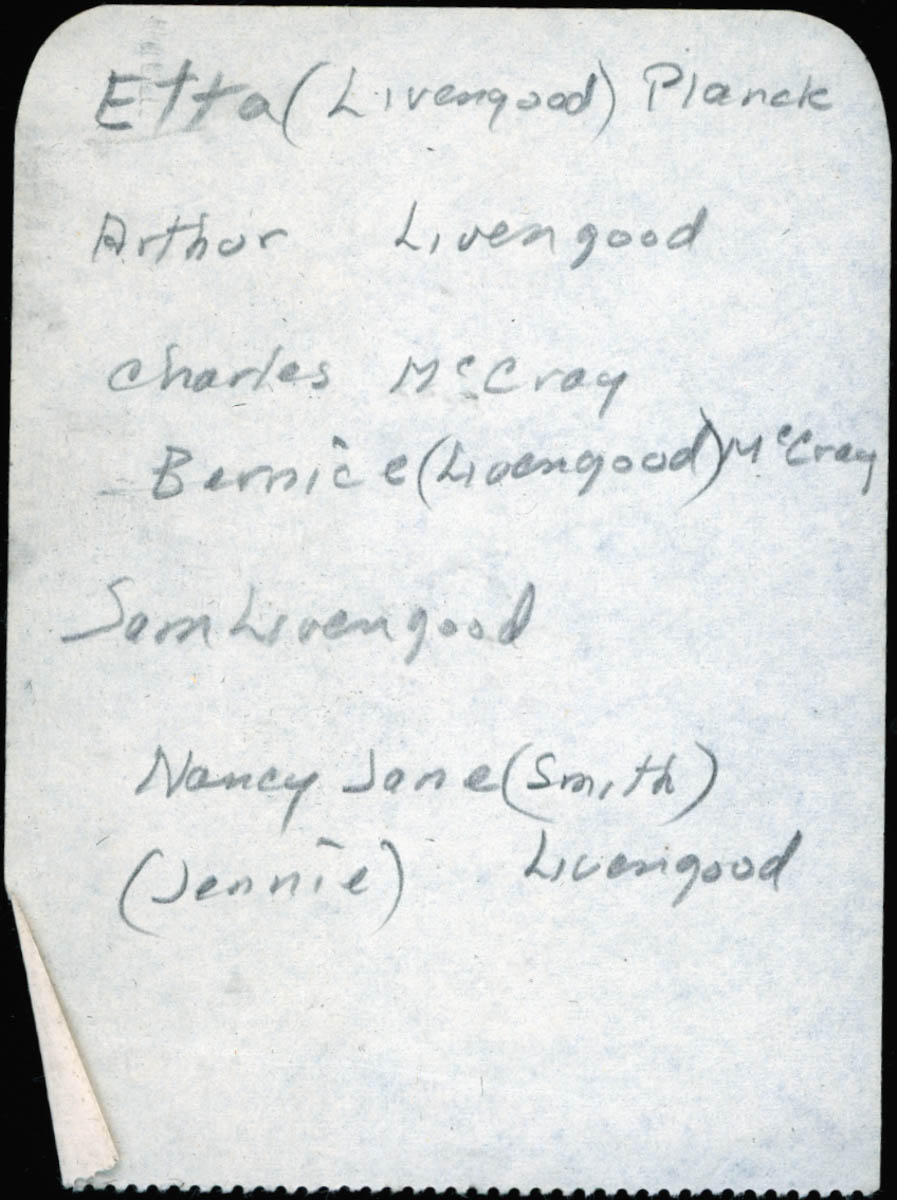 Etta (Livengood) Planck
Arthur Livengood
Charles McCray
Bernice (Livengood) McCray
Sam Livengood
Nancy Jane (Smith)
(Jennie) Livengood